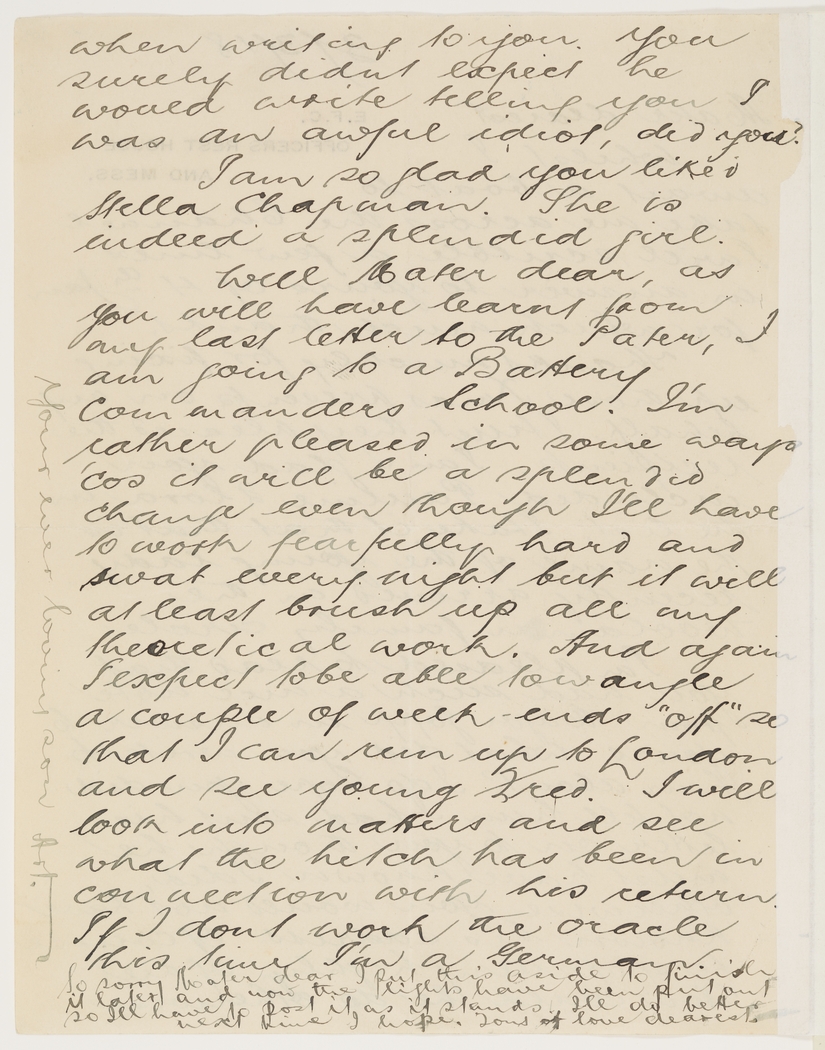 when writing to you. You
surely didnt expect he
would write telling you I
was an awful idiot, did you?
I am so glad you liked
Stella Chapman. She is
indeed a splendid girl.
Well Mater dear, as
you will have learnt from
my last letter to the Pater, I
am going to a Battery
Commanders School. I'm
rather pleased in some ways
'cos it will be a splendid
change even though I'll have
to work fearfully hard and
swat every night but it will
at least brush up all my
theoretical work. And again
I expect to be able to wangle
a couple of week-ends "off" so
that I can run up to London
and see young Fred. I will
look into matters and see
what the hitch has been in
connection with his return.
If I dont work the oracle
this time I'm a German.
So sorry Mater dear I put this aside to finish
it later and now the flights have been put out
so I'll have to post it as it stands. I'll do better
next time I hope. Tons of love dearest.
Your ever loving son